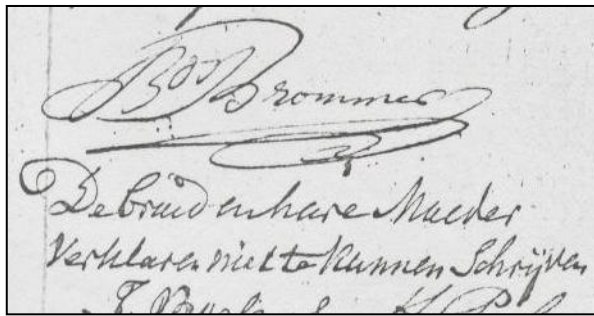 Bon Brommer
De bruid en hare Moeder
Verklaren niet te kunnen Schrijven